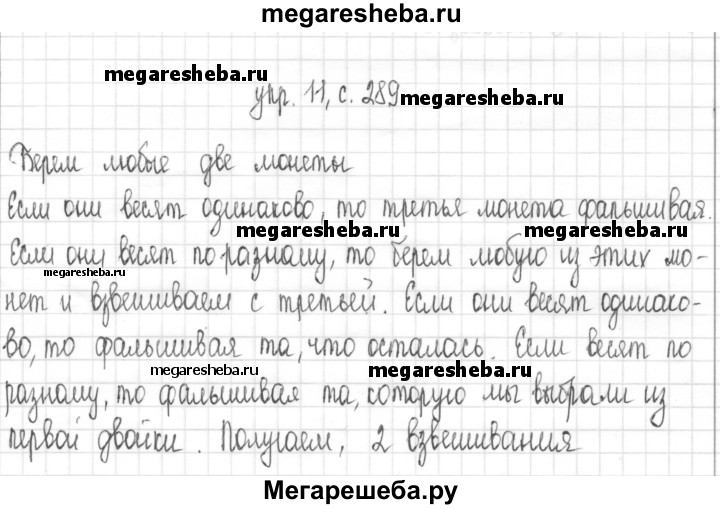 megaresheba.ru
megaresheba.ru
упр. 11, с. 289 megaresheba.ru
Берем любые две монеты
Если они весят одинаково, то третья монета фальшивая.
megaresheba.ru megaresheba.ru
Если они весят по разному, то берем любую из этих мо-
megaresheba.ru
нет и взвешиваем с третьей. Если они весят одинако-
во, то фальшивая та, что осталась. Если весят по
megaresheba.ru megaresheba.ru
разному, то фальшивая та, которую мы выбрали из
первой двойки. Получаем, 2 взвешивания
Мегарешеба.ру